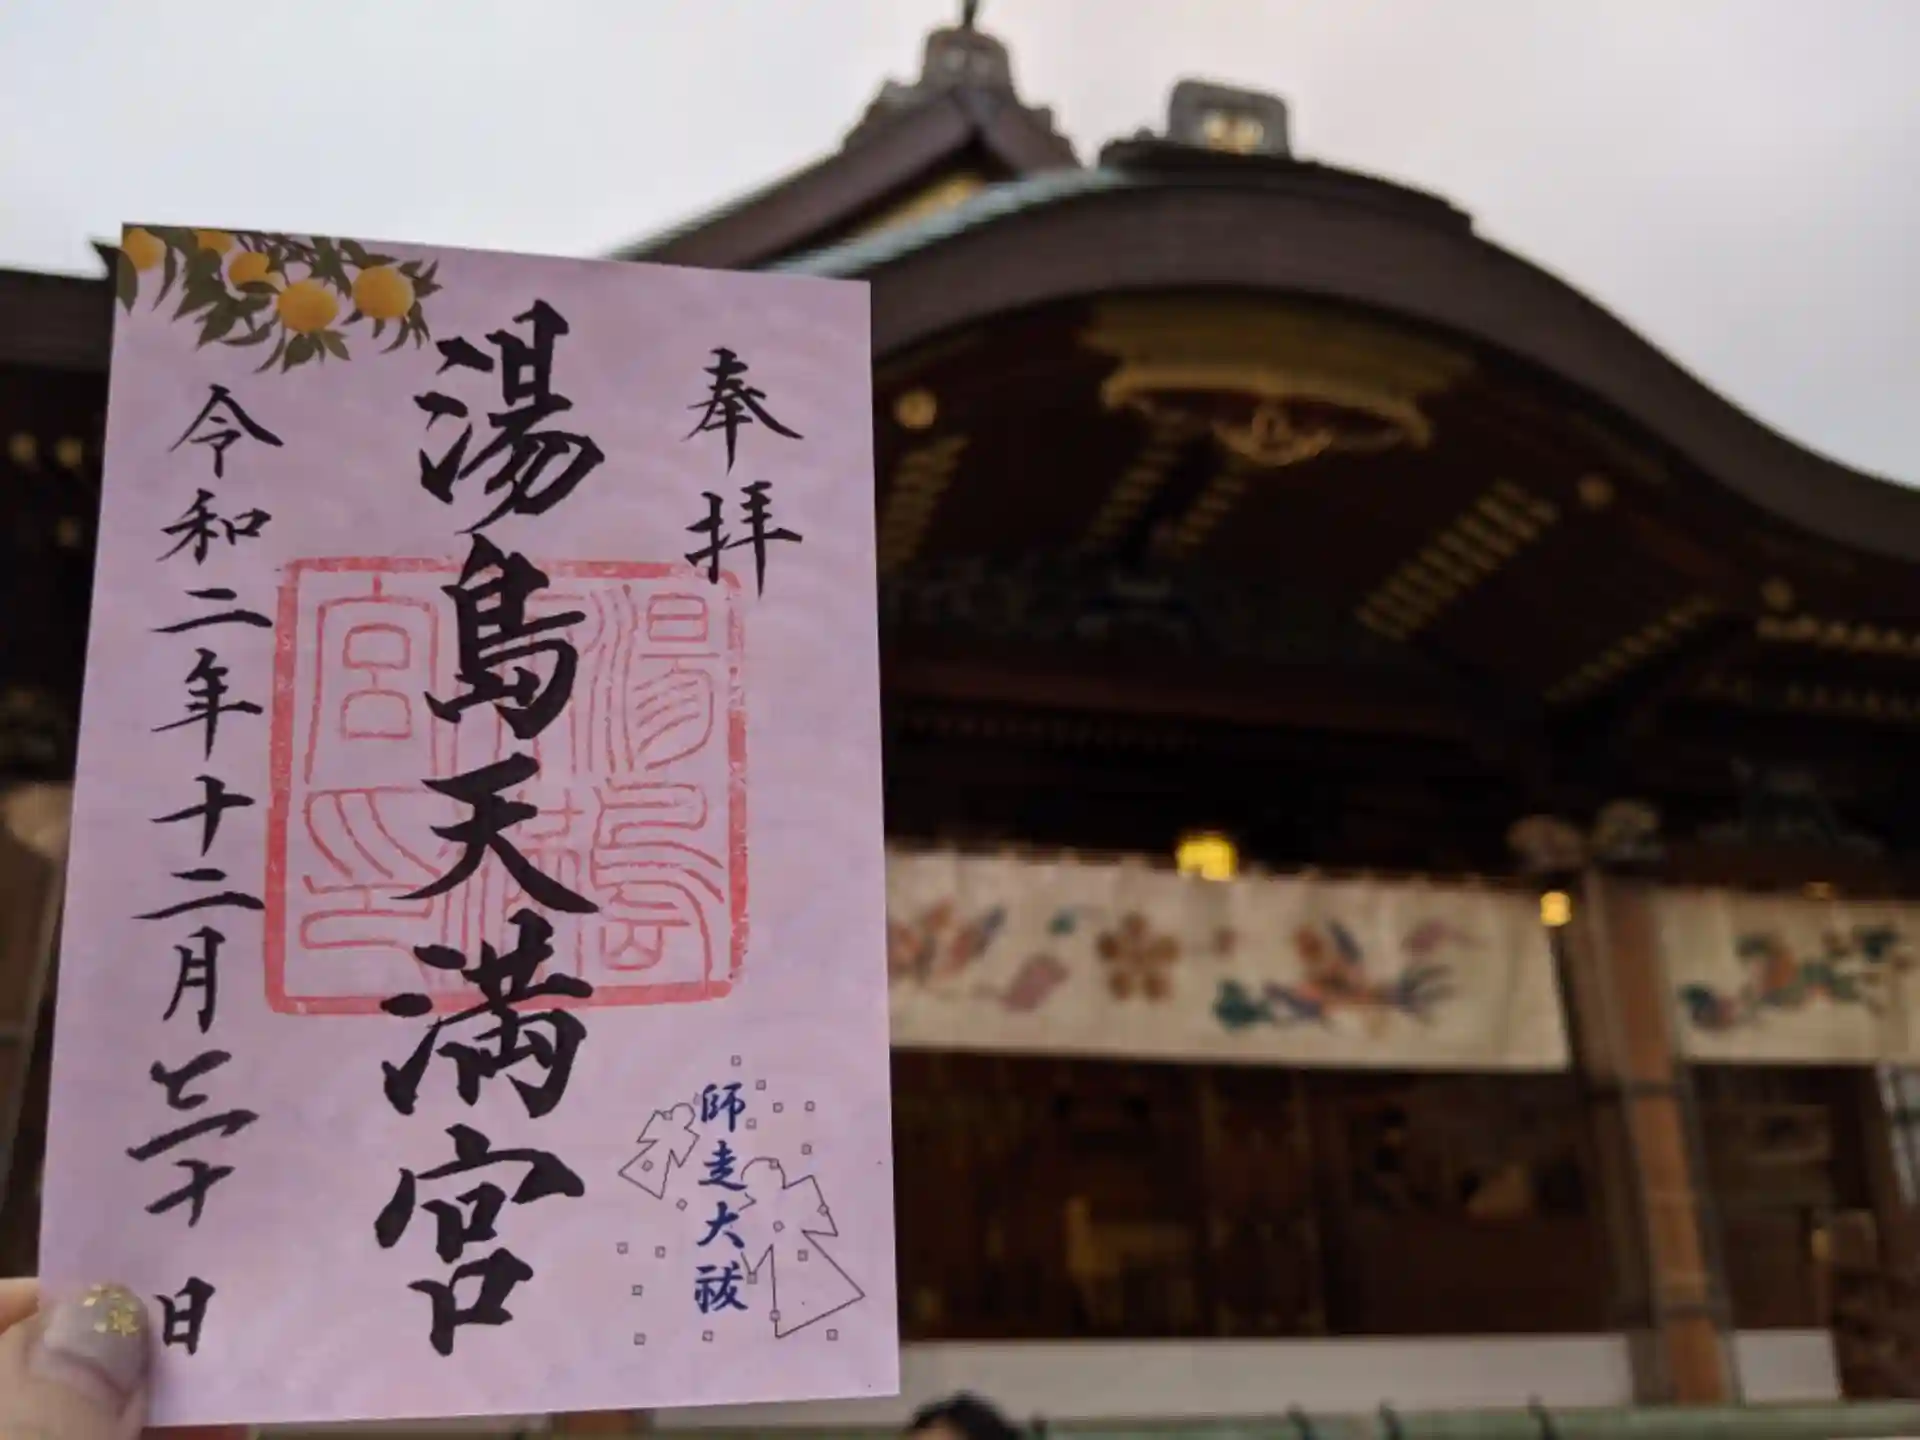 奉拝
師走大祓
湯島天満宮
湯島
天満
宮印
令和二年十二月三十日